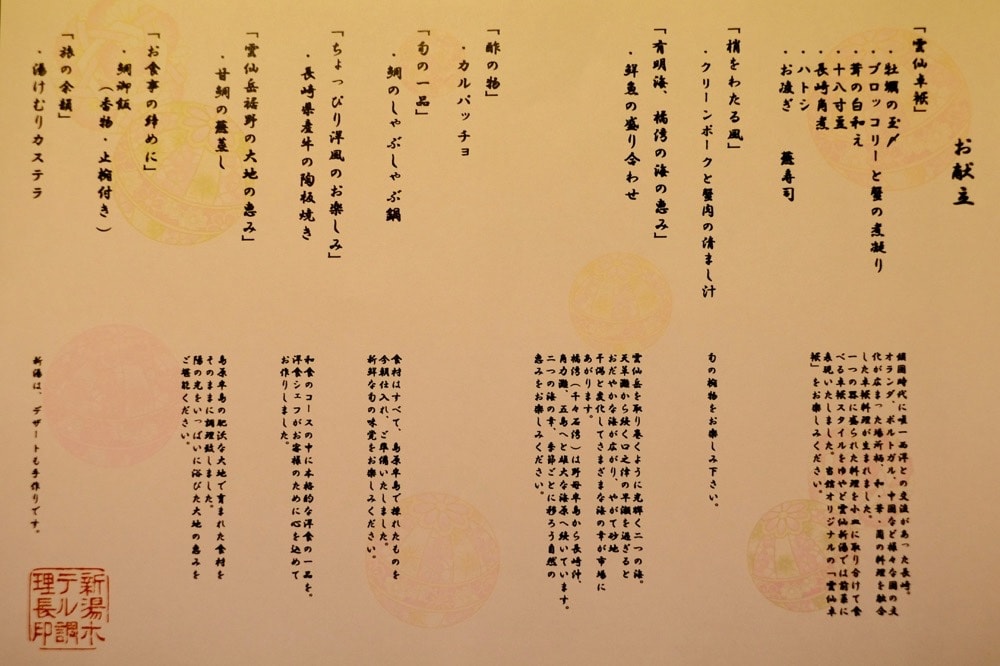 お献立
「雲仙卓袱」
・牡蠣の玉〆
・ブロッコリーと蟹の煮凝り
・茸の白和え
・十八寸豆
・長崎角煮
・ハトシ
・お凌ぎ 蒸寿司
「梢をわたる風」
・クリーンポークと蟹肉の清まし汁
「有明海、橘湾の海の恵み」
・鮮魚の盛り合わせ
「酢の物」
・カルパッチョ
「旬の一品」
・鯛のしゃぶしゃぶ鍋
「ちょっぴり洋風のお楽しみ」
・長崎県産牛の陶板焼き
「雲仙岳裾野の大地の恵み」
・甘鯛の蕪蒸し
「お食事の締めに」
・鯛御飯
（香物・止椀付き）
「旅の余韻」
・湯けむりカステラ
鎖国時代に唯一西洋との交流があった長崎。
オランダ、ポルトガル、中国など様々な国の文
化が広まった場所柄、和・華・蘭の料理を融合
した卓袱料理が生まれました。
一つの器に盛られた料理を小皿に取り分けて食
べる卓袱スタイルをゆやど雲仙新湯では前菜に
表現いたしました。当館オリジナルの「雲仙卓
袱」をお楽しみください。
旬の椀物をお楽しみ下さい。
雲仙岳を取り巻くように光輝く二つの海。
天草灘から続く口之津の早瀬を過ぎると
おだやかな海が広がり、やがて砂地
干潟と変化してさまざまな海の幸が市場に
あがります。
橘湾（千々石湾）は野母半島から長崎沖、
角力灘、五島へと雄大な海原へ続いています。
二つの海の幸、季節ごとに移ろう自然の
恵みをお楽しみください。
食材はすべて、島原半島で採れたものを
今朝仕入れ、ご準備いたしました。
新鮮な旬の味覚をお楽しみください。
和食のコースの中に本格的な洋食の一品を。
洋食シェフがお客様のために心を込めて
お作りしました。
島原半島の肥沃な大地で育まれた食材を
そのままに調理致しました。
陽の光をいっぱいに浴びた大地の恵みを
ご堪能ください。
新湯は、デザートも手作りです。
新湯ホ
テル調
理長印